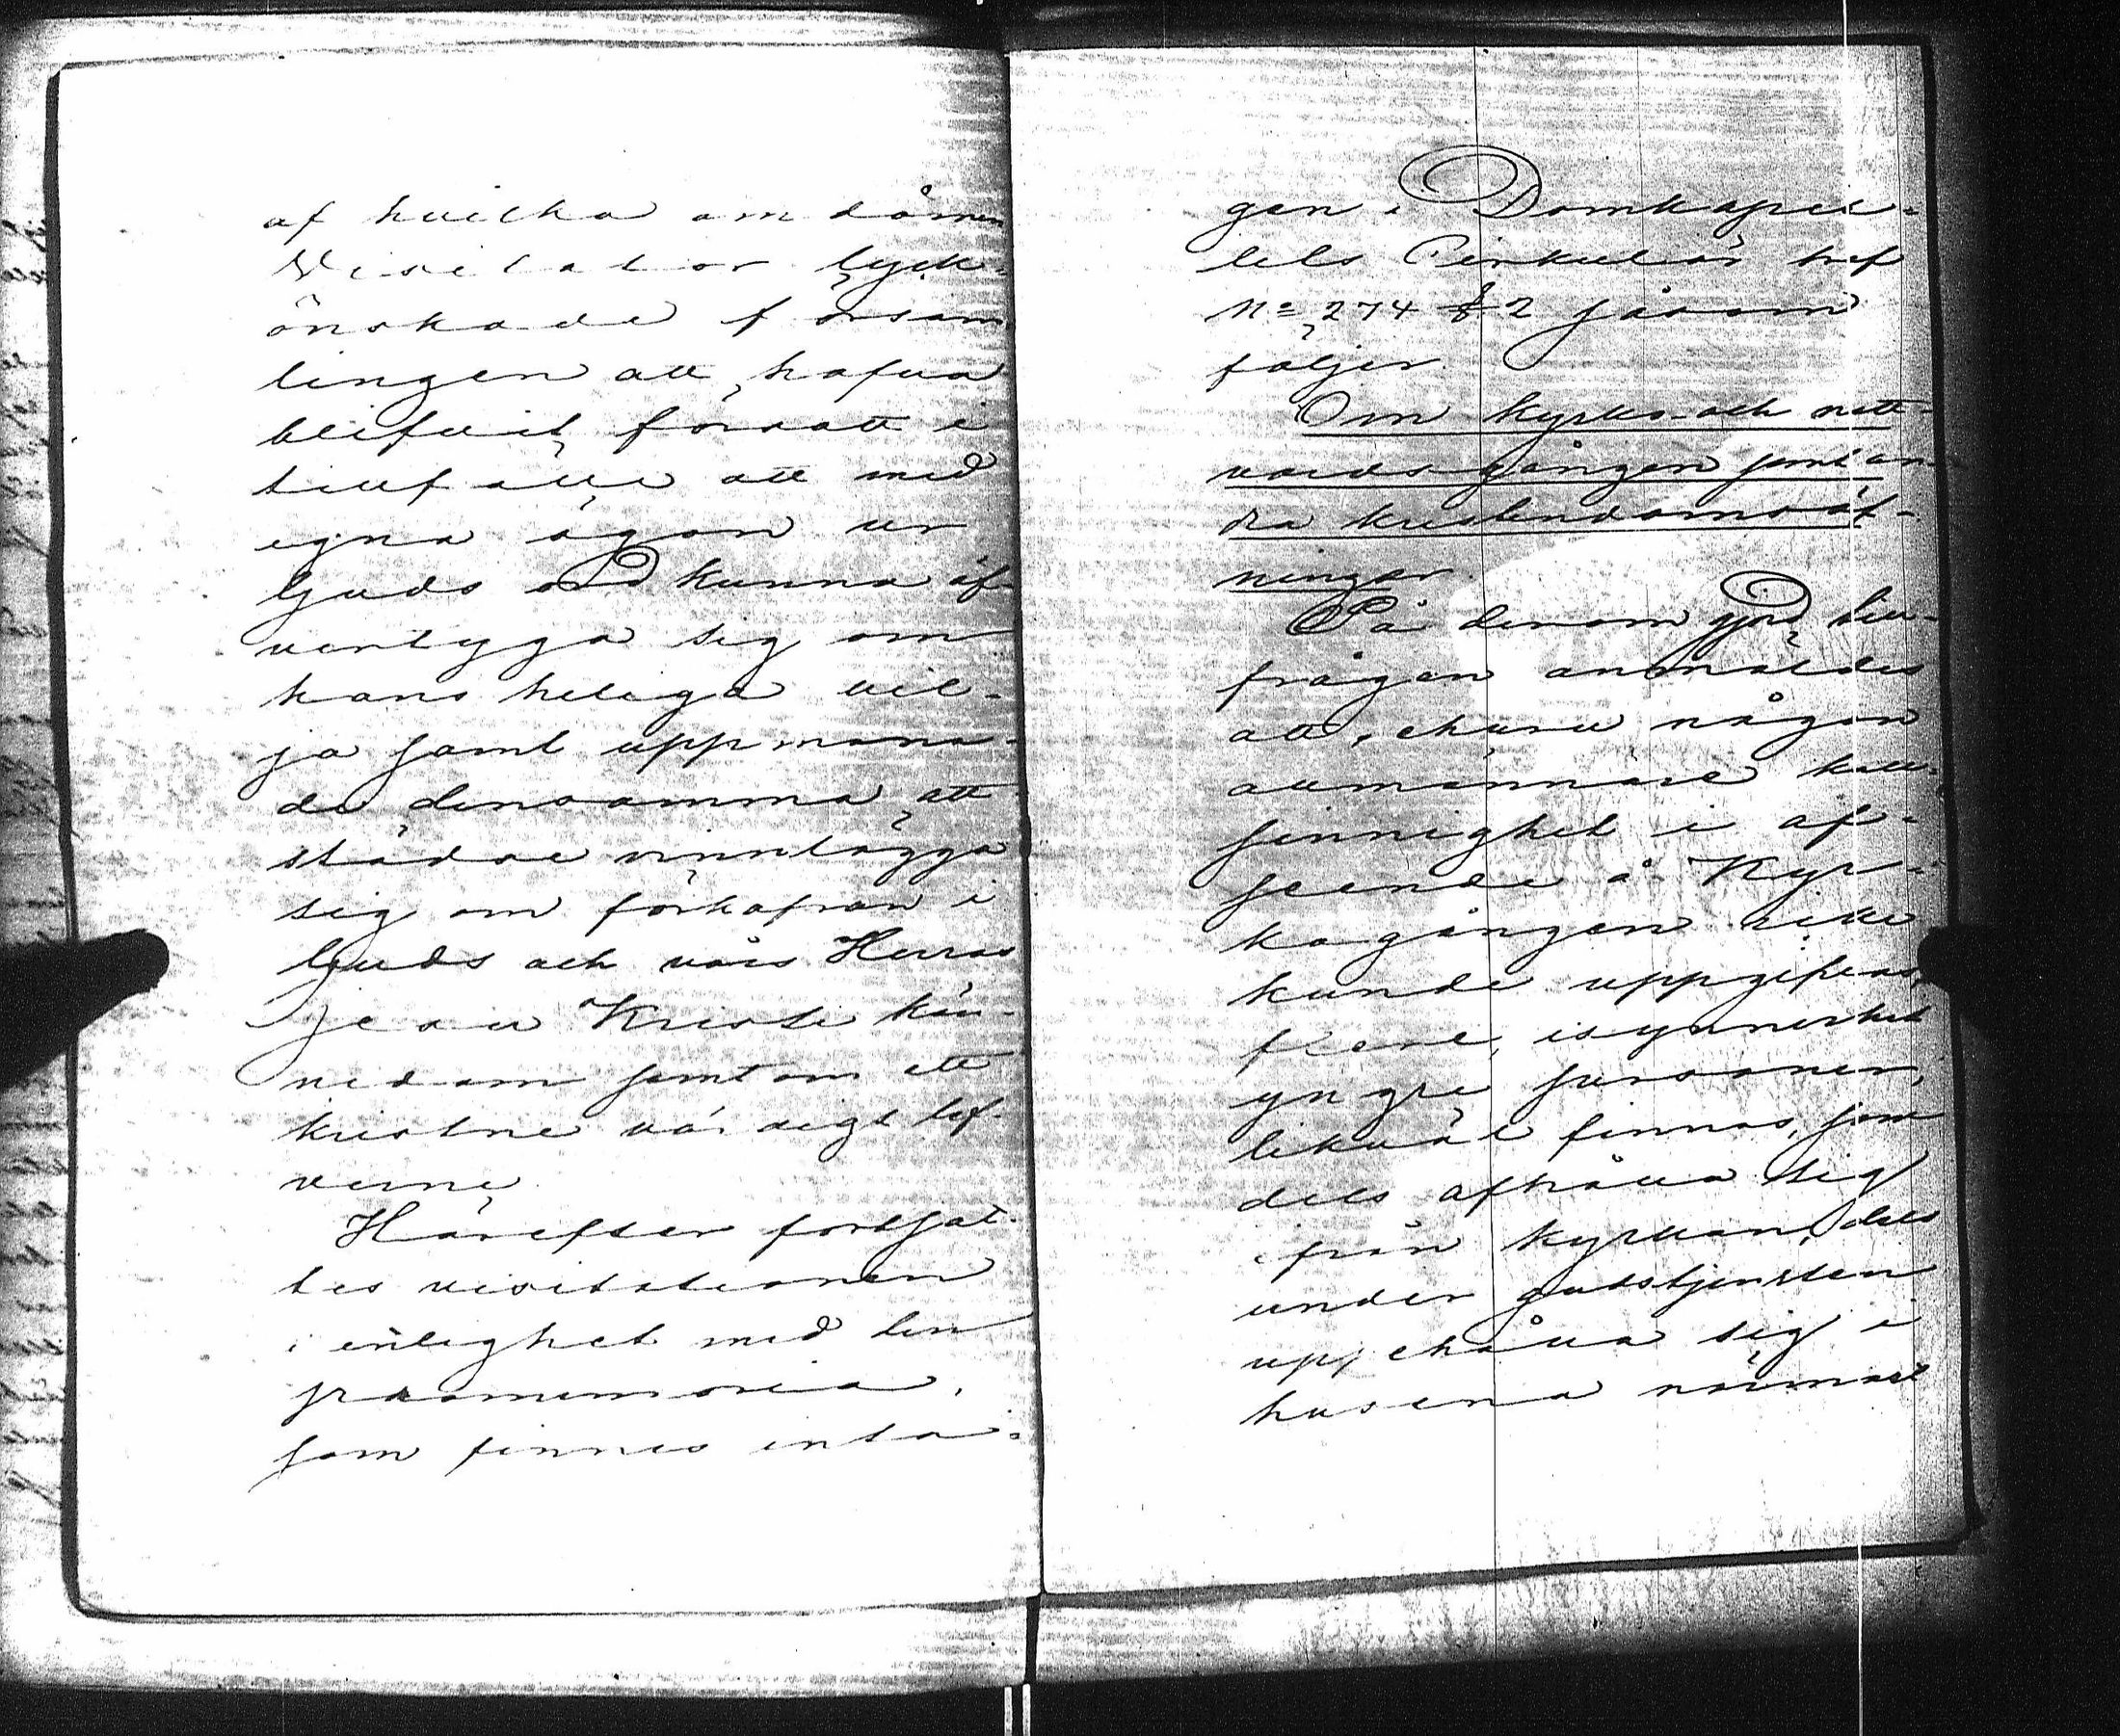 af hvilka omdömen
Visitator lyck-
önskade församl
lingen att hafva
blifvit försatt i
tillfälle att med
egna ögon ur
Guds ord kunna öf-
vertyga sig om
hans heliga vil-
ja samt uppmana-
de densamma att
städse vinnlägga
sig om förkofran i
Guds och vårs Herras
Jesu Kristi kän-
nedom samt om ett
kristne värdigt lef-
verne.
Härefter fortsat-
tes visitationen
i enlighet med den
promemoria,
som finnes inta-
gen i Domkapit-
lels Cirkulär bref
No 274 § 2 såsom
följer.
Om kyrko- och natt-
vardsgången samt an-
dra kristendomsöf-
ningar.
På derom gjord till-
frågan anmäldes
att, ehuru någon
allmännare kall-
sinnighet i af-
seende å Kyr-
kogången icke
kunde uppgifvas,
flere, isynnerhet
yngre personer,
likväl finnas, som
dels afhålla sig
från kyrkan, dels
under gudstjensten
uppehålla sig i
husena närmast